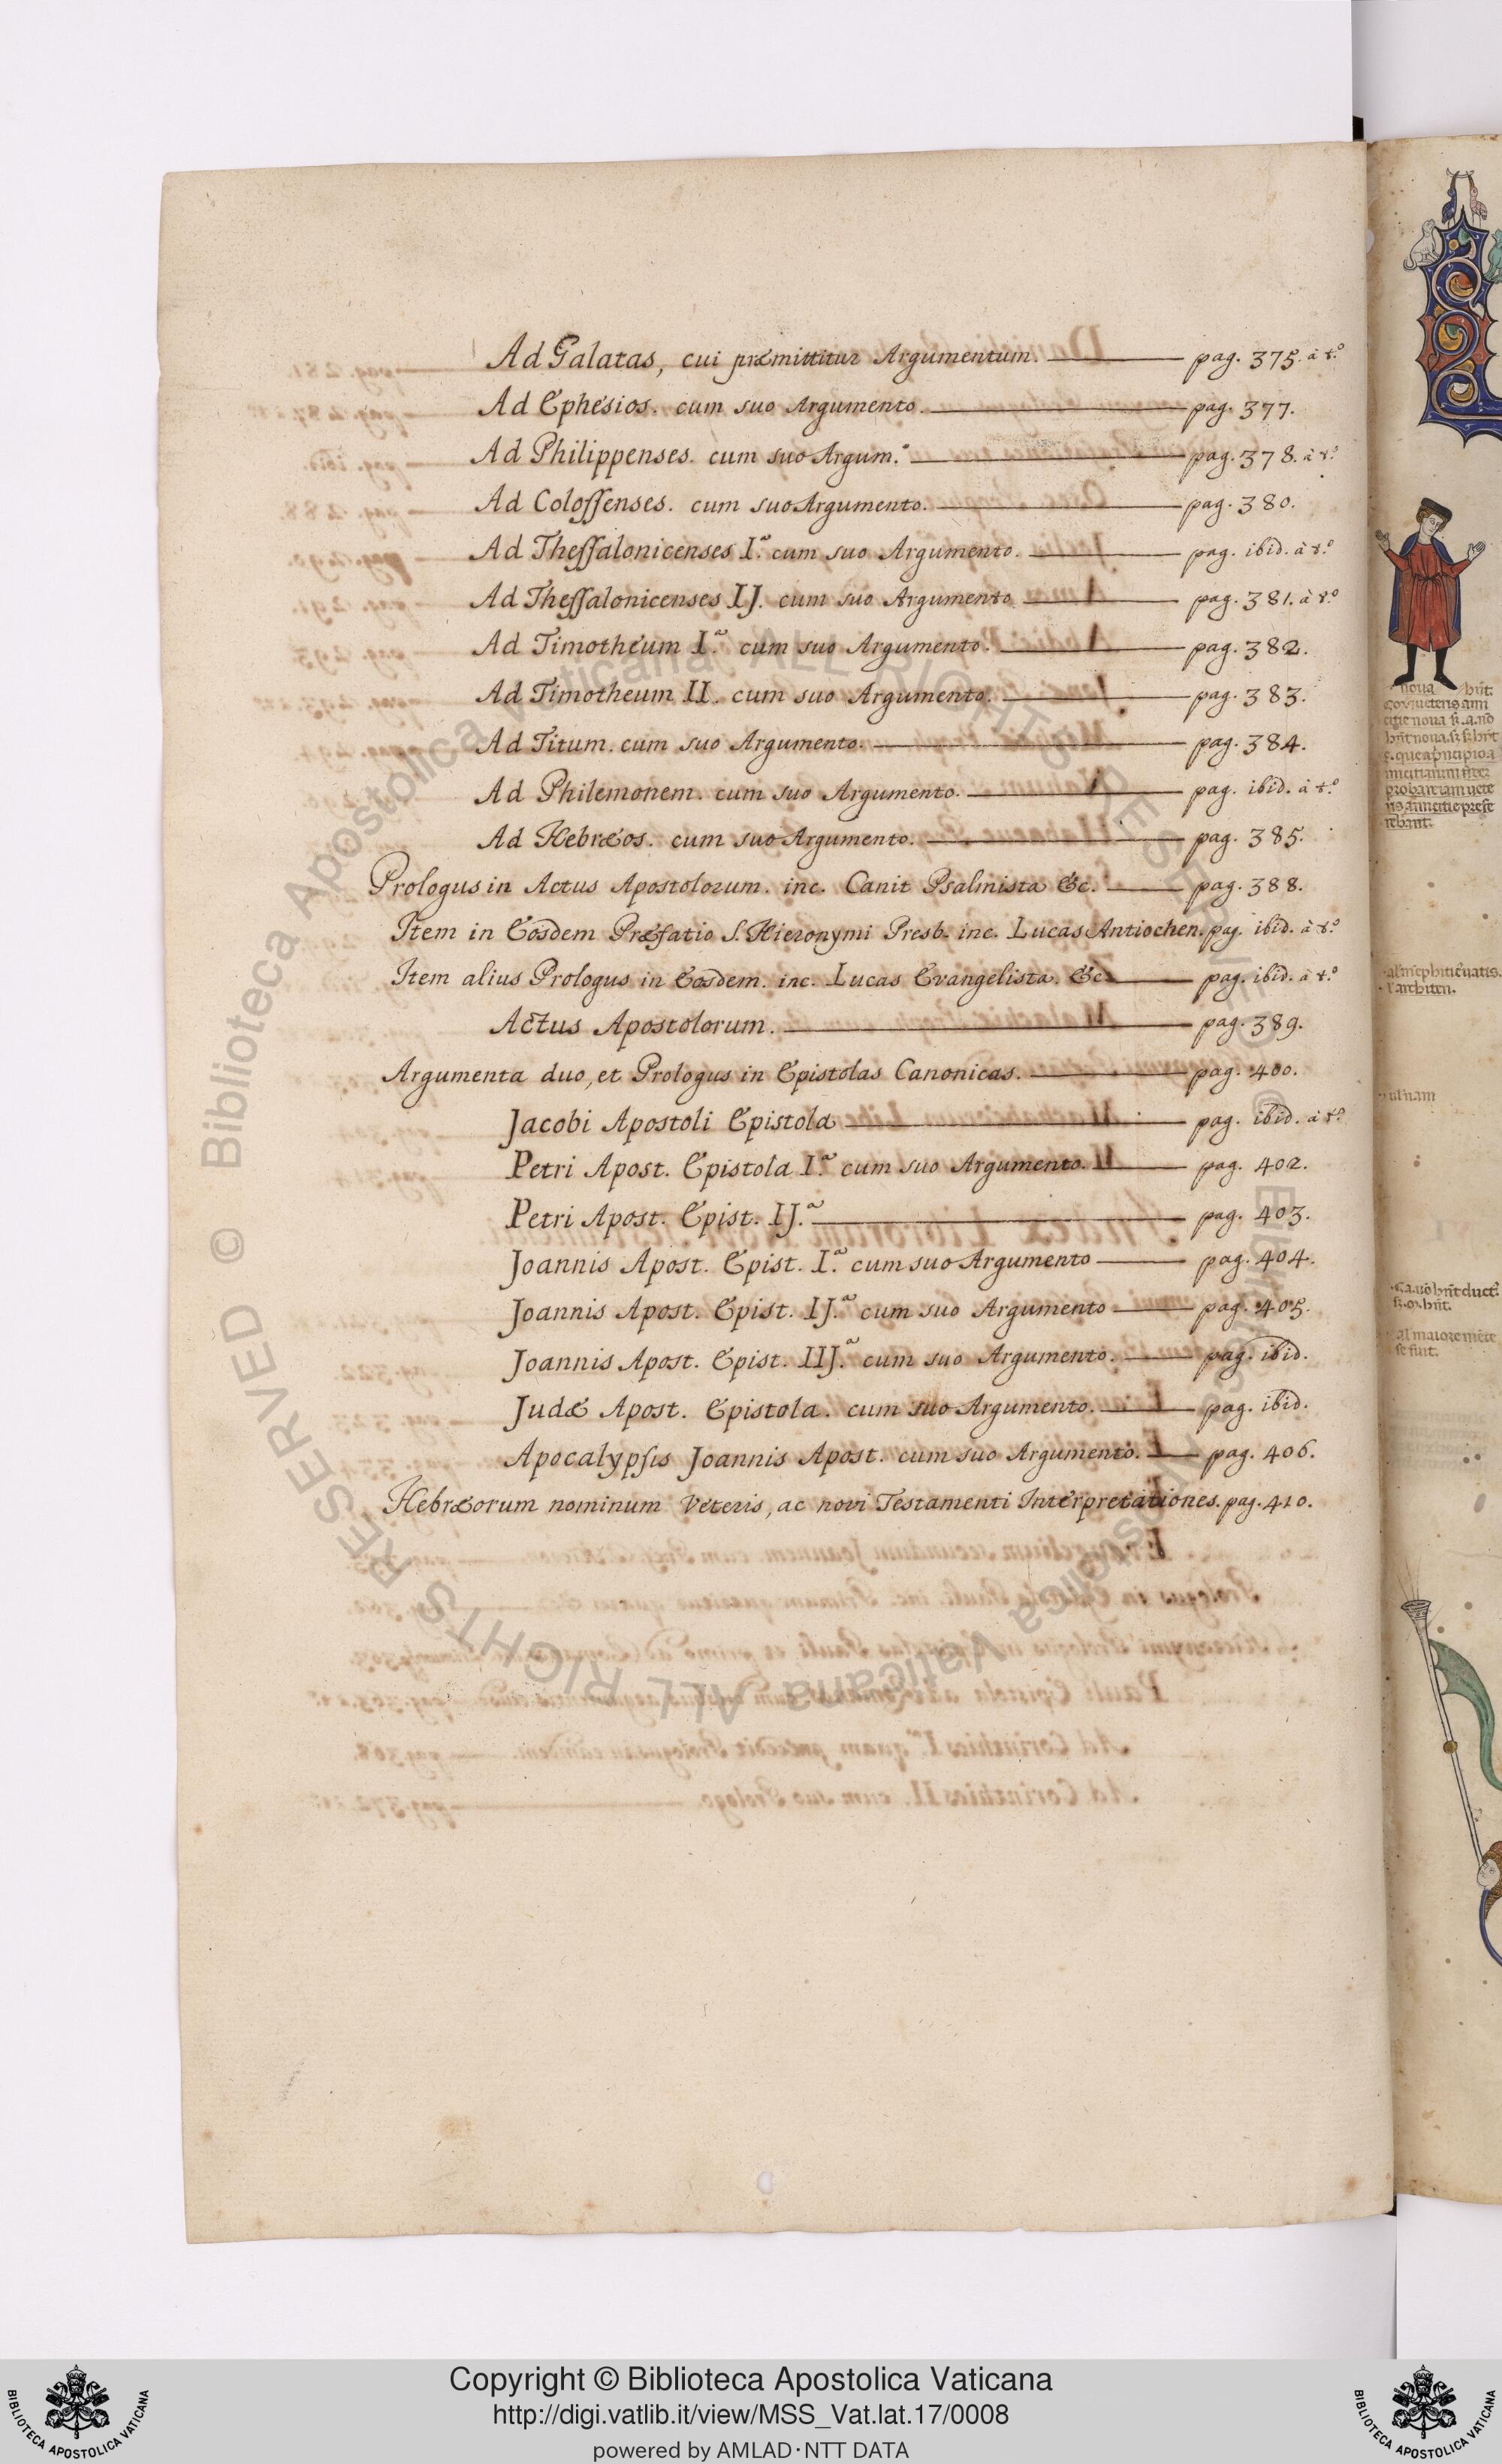 Ad Galatas, cui præmittitur Argumentum. pag. 375. à t.º
Ad Ephesios. cum suo Argumento. pag. 377.
Ad Philippenses. cum suo Argum.º pag. 378. à t.º
Ad Colossenses. cum suo Argumento. pag. 380.
Ad Thessalonicenses I.ª cum suo Argumento. pag. ibid. à t.º
Ad Thessalonicenses IJ. cum suo Argumento. pag. 381. à t.º
Ad Timotheum I.ª cum suo Argumento. pag. 382.
Ad Timotheum II. cum suo Argumento. pag. 383.
Ad Titum. cum suo Argumento. pag. 384.
Ad Philemonem. cum suo Argumento. pag. ibid. à t.º
Ad Hebræos. cum suo Argumento. pag. 385.
Prologus in Actus Apostolorum. inc. Canit Psalmista &c. pag. 388.
Item in Eosdem Præfatio S. Hieronymi Presb. inc. Lucas Antiochen. pag. ibid. à t.º
Item alius Prologus in Eosdem. inc. Lucas Evangelista. &c pag. ibid. à t.º
Actus Apostolorum. pag. 389.
Argumenta duo, et Prologus in Epistolas Canonicas. pag. 400.
Jacobi Apostoli Epistola pag. ibid. à t.º
Petri Apost. Epistola I.ª cum suo Argumento. pag. 402.
Petri Apost. Epist. IJ.ª pag. 403.
Joannis Apost. Epist. I.ª cum suo Argumento pag. 404.
Joannis Apost. Epist. IJ.ª cum suo Argumento pag. 405.
Joannis Apost. Epist. IIJ.ª cum suo Argumento. pag. ibid.
Judæ Apost. Epistola. cum suo Argumento. pag. ibid.
Apocalypsis Joannis Apost. cum suo Argumento. pag. 406.
Hebræorum nominum Veteris, ac novi Testamenti Interpretationes. pag. 410.
© Biblioteca Apostolica Vaticana ALL RIGHTS RESERVED
© Biblioteca Apostolica Vaticana ALL RIGHTS RESERVED
Copyright © Biblioteca Apostolica Vaticana
http://digi.vatlib.it/view/MSS_Vat.lat.17/0008
powered by AMLAD·NTT DATA
BIBLIOTECA APOSTOLICA VATICANA
BIBLIOTECA APOSTOLICA VATICANA